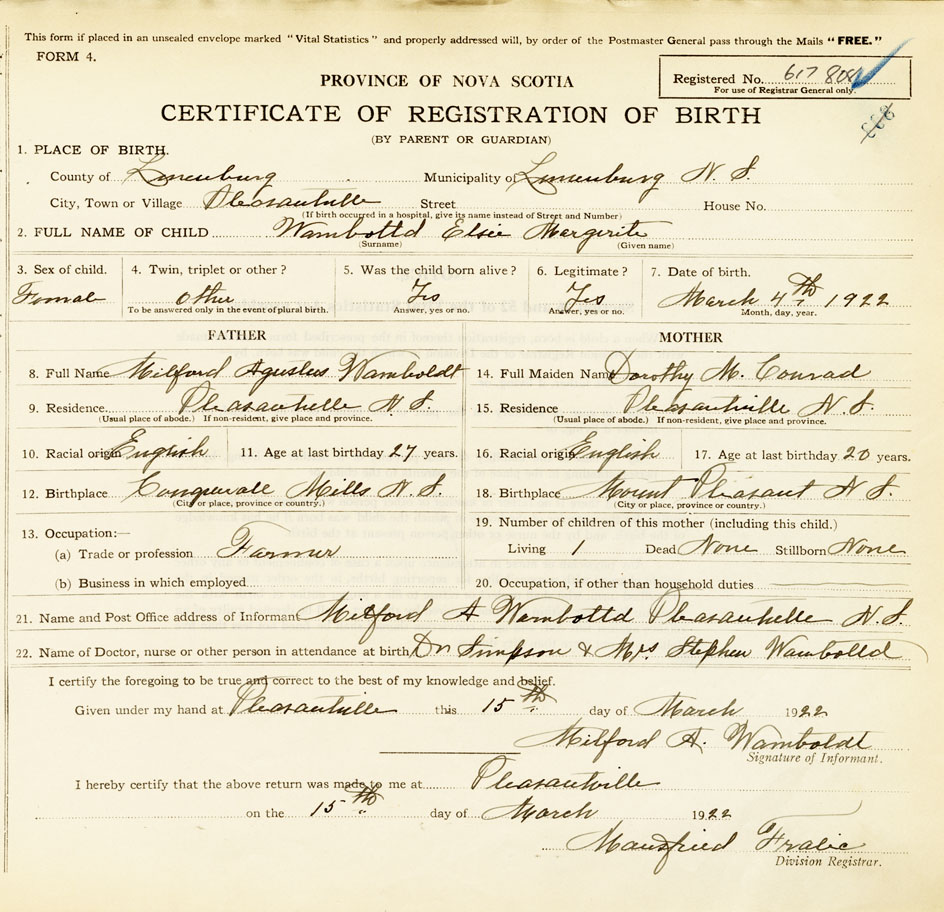 This form if placed in an unsealed envelope marked "Vital Statistics" and properly addressed will, by order of the Postmaster General pass through the Mails "FREE."
FORM 4.
PROVINCE OF NOVA SCOTIA
Registered No. 617 808
For use of Registrar General only.
CERTIFICATE OF REGISTRATION OF BIRTH
(BY PARENT OR GUARDIAN)
1. PLACE OF BIRTH.
County of Lunenburg Municipality of Lunenburg N. S.
City, Town or Village Pleasantville Street House No.
(If birth occurred in a hospital, give its name instead of Street and Number)
2. FULL NAME OF CHILD Wambottd Elsie Margerite
(Surname) (Given name)
3. Sex of child. 4. Twin, triplet or other? 5. Was the child born alive? 6. Legitimate? 7. Date of birth.
Female other Yes Yes March 4th 1922
To be answered only in the event of plural birth. Answer, yes or no. Answer, yes or no. Month, day, year.
FATHER MOTHER
8. Full Name Milford Agustus Wamboldt 14. Full Maiden Name Dorothy M. Conrad
9. Residence Pleasantville N. S. 15. Residence Pleasantville N. S.
(Usual place of abode.) If non-resident, give place and province. (Usual place of abode.) If non-resident, give place and province.
10. Racial origin English 11. Age at last birthday 27 years. 16. Racial origin English 17. Age at last birthday 20 years.
12. Birthplace Mills N. S. 18. Birthplace Mount Pleasant N S.
(City or place, province or country.) (City or place, province or country.)
13. Occupation:— 19. Number of children of this mother (including this child.)
(a) Trade or profession Farmer Living 1 Dead None Stillborn None
(b) Business in which employed 20. Occupation, if other than household duties
21. Name and Post Office address of Informant Milford A Wambottd Pleasantville N. S.
22. Name of Doctor, nurse or other person in attendance at birth Dr Simpson & Mrs Stephen Wambottd
I certify the foregoing to be true and correct to the best of my knowledge and belief.
Given under my hand at Pleasantville this 15th day of March 1922
Milford A. Wamboldt
Signature of Informant.
I hereby certify that the above return was made to me at Pleasantville
on the 15th day of March 1922
Mansfried Fralic
Division Registrar.